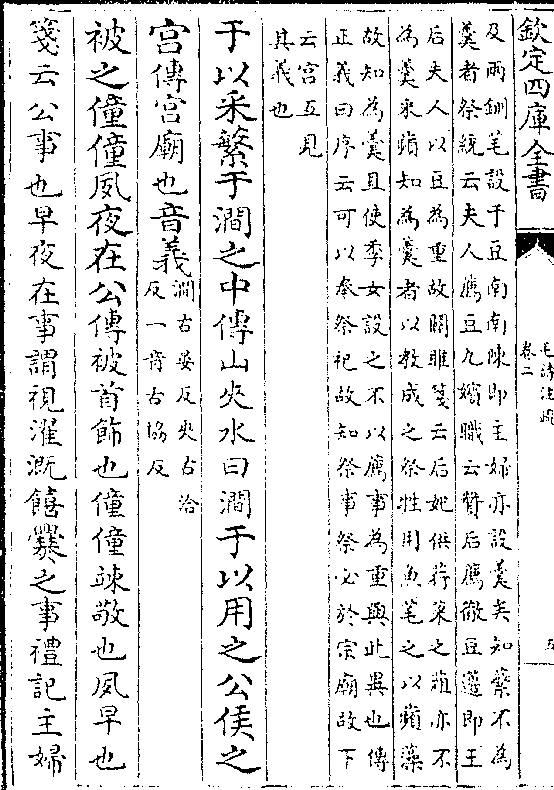 欽定四庫全書
毛詩注疏
卷二
五
及兩鉶芼設于豆南南陳即主婦亦設羹矣知蘩不為
羹者祭統云夫人薦豆九嬪職云贊后薦徹豆籩即王
后夫人以豆為重故關雎箋云后妃供荇菜之葅亦不
為羹采蘋知為羹者以教成之祭牲用魚芼之以蘋藻
故知為羹且使季女設之不以薦事為重與此異也傳
正義曰序云可以奉祭祀故知祭事祭必於宗廟故下
云宫互見
其義也
于以采蘩于澗之中傳山夾水曰澗于以用之公侯之
宫傳宫廟也音義澗古晏反夾古洽
反一音古協反
被之僮僮夙夜在公傳被首飾也僮僮竦敬也夙早也
箋云公事也早夜在事謂視濯溉饎爨之事禮記主婦